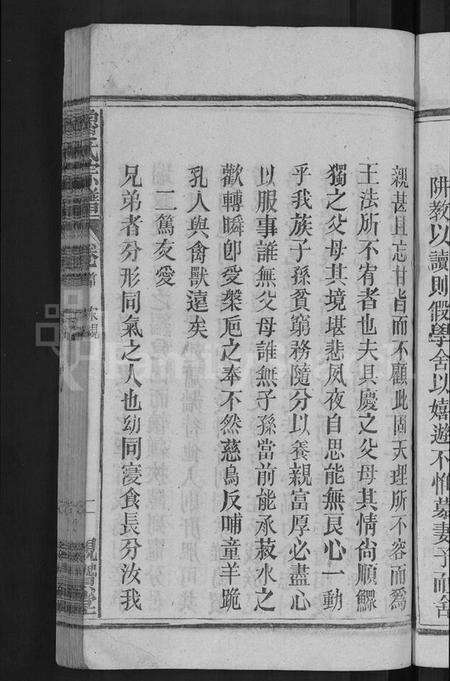 阱教以讀則假學舍以嬉遊不怕暴妻子而舍
親甚且忘甘旨而不顧此固天理所不容而爲
王法所不宥者也夫具慶之父母其情尙順鰥
獨之父母其境堪悲夙夜自思能無良心一動
乎我族子孫貧窮務隨分以養親富厚必盡心
以服事誰無父母誰無子孫當前能承菽水之
歡轉瞬卽受槃匜之奉不然慈烏反哺童羊跪
乳人與禽獸遠矣
二篤友愛
兄弟者分形同氣之人也幼同寢食長分汝我
氏宗譜
卷首
宗規
二